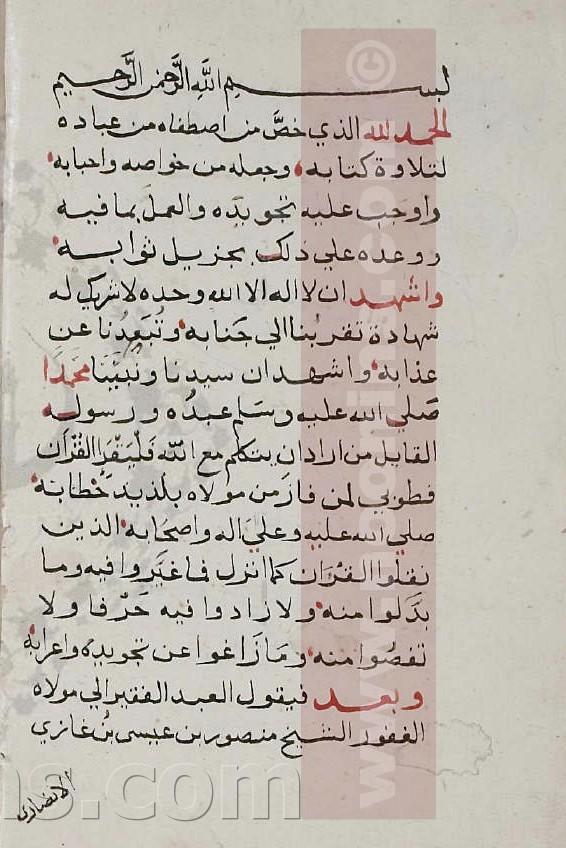 بسم الله الرحمن الرحيم
الحمد لله الذي خصَّ من اصطفاه من عباده
لتلاوة كتابه وجعله من خواصه واحبابه
واوجب عليه تجويده والعمل بما فيه
ووعده علي ذلك بجزيل ثوابه
واشهد ان لا اله الا الله وحده لا شريك له
شهادة تقربنا الي جنابه وتُبعدُنا عن
عذابه واشهد ان سيدنا ونبيَّنا محمدًا
صلي الله عليه وسلم عبدُه ورسوله
القايل من اراد ان يتكلم مع الله فليقرَا القُرْآن
فطوبي لمن فاز من مولاه بلذيد خطابه
صلي الله عليه وعلي اله واصحابه الذين
نقلوا القرآن كما انزل فما غيَّروا فيه وما
بدَّلوا منه ولا زادوا فيه حَرْفا ولا
نقصُوا منه وما زاغوا عن تجويده واعرابه
وبعد فيقول العبد الفقير الي مولاه
الغفور الشيخ منصور بن عيسى بن غازي
الانصاري
www.hponline.com ©
ns.com